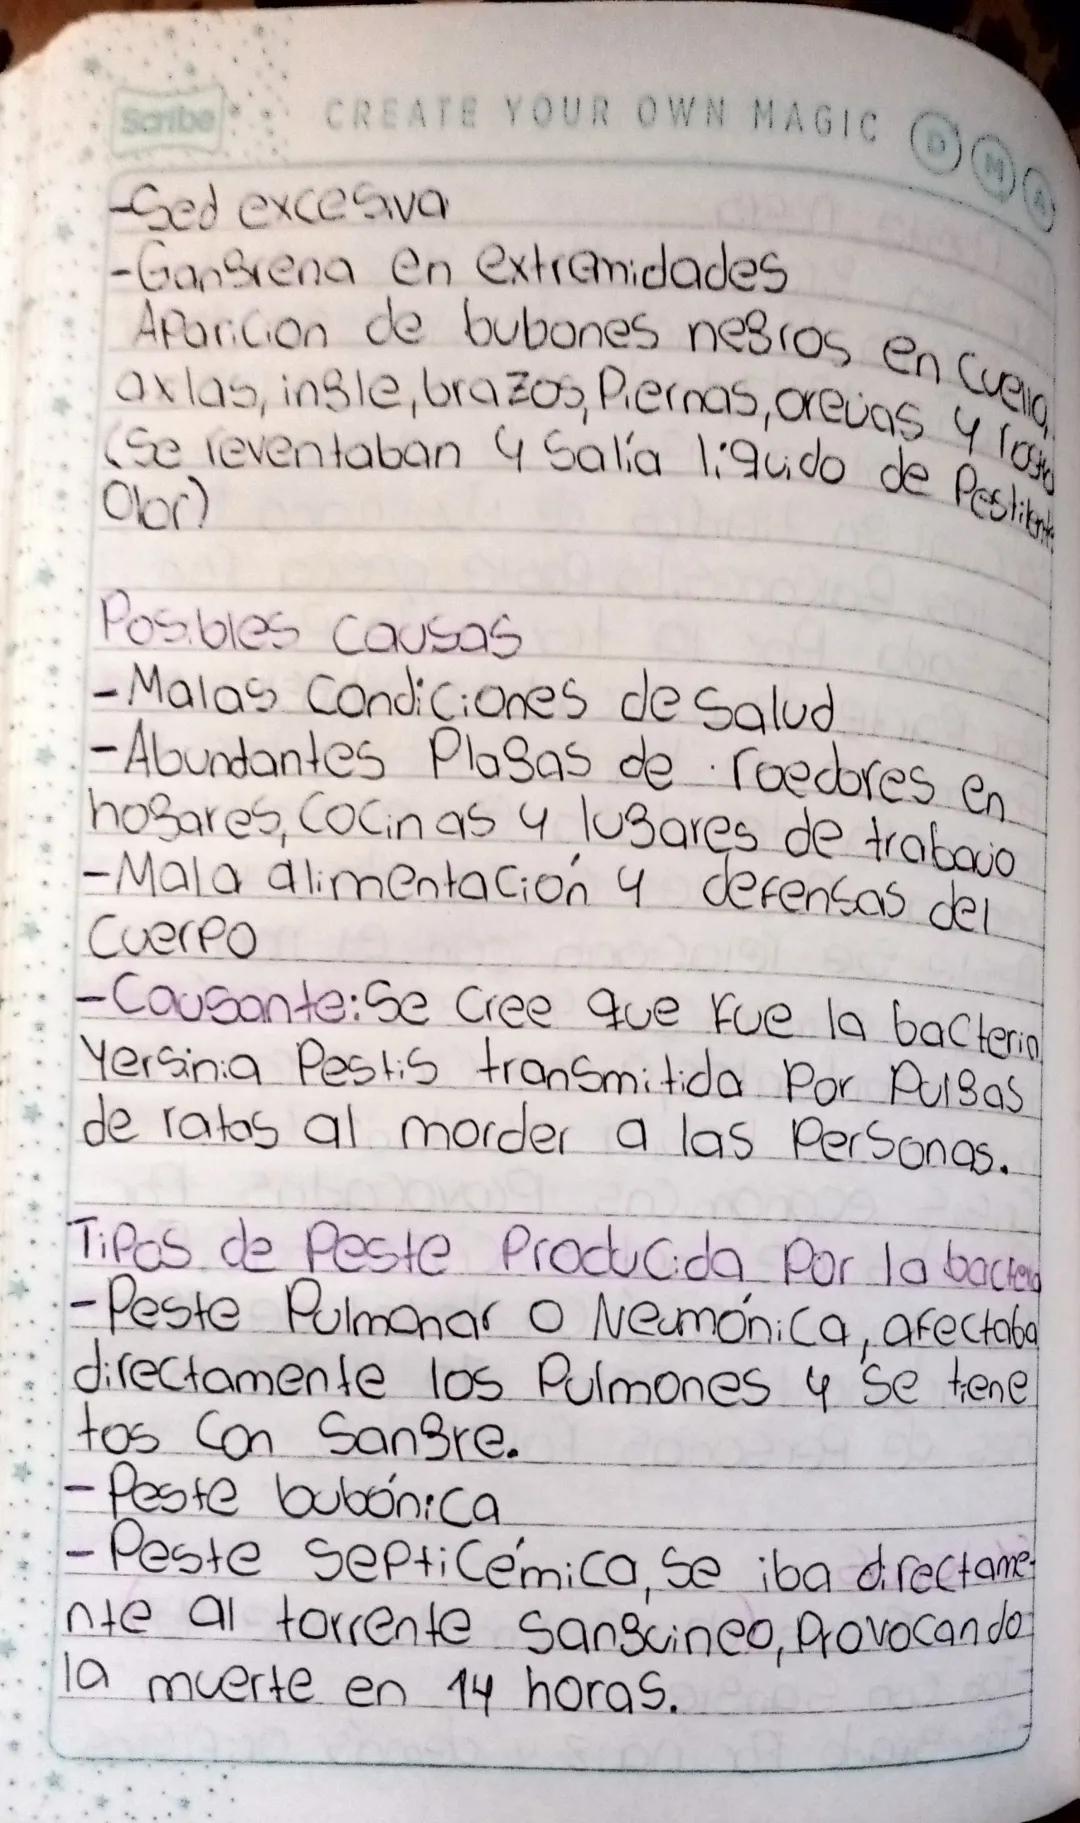 Scribe CREATE YOUR OWN MAGIC D M A
-Sed excesiva
-Gangrena en extremidades
Aparicion de bubones negros en cuello,
axlas, ingle, brazos, Piernas, orejas y rostro
(Se reventaban y Salía líquido de Pestilente
Olor)
Posibles causas
-Malas Condiciones de Salud
-Abundantes Plagas de roedores en
hogares, Cocinas y lugares de trabajo
-Mala alimentación y defensas del
Cuerpo
-Causante: Se Cree que fue la bacteria
Yersinia Pestis transmitida Por Pulgas
de ratas al morder a las Personas.
Tipos de Peste Producida Por la bacteria
-Peste Pulmonar o Neumónica, afectaba
directamente los Pulmones y Se tiene
tos Con Sangre.
-Peste bubónica
-Peste Septicémica, Se iba directame-
nte al torrente Sanguineo, Provocando
la muerte en 14 horas.